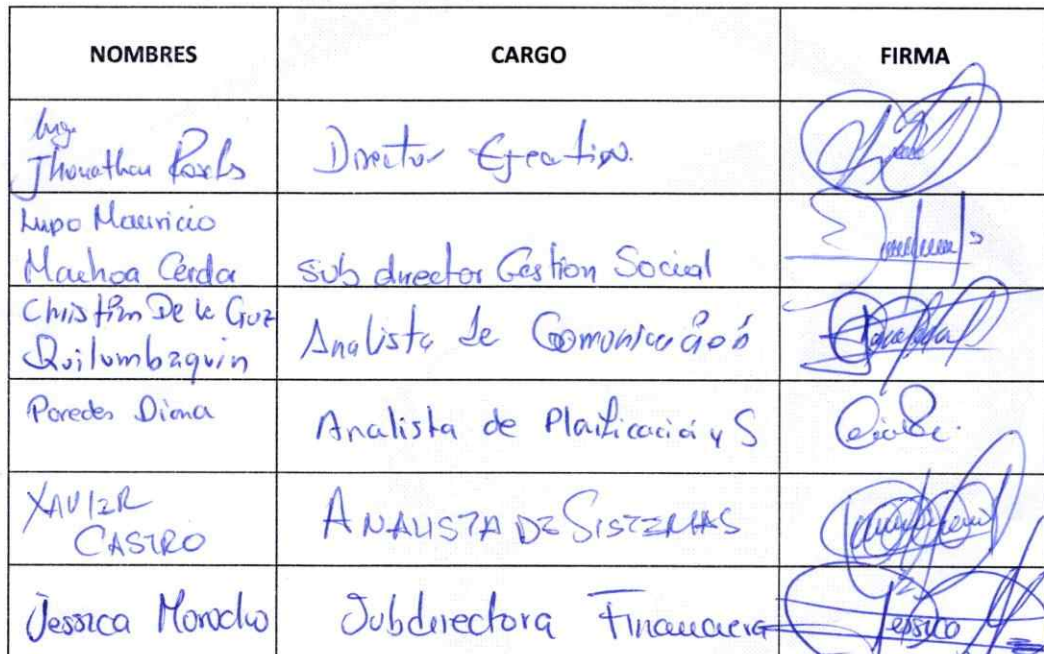 NOMBRES CARGO FIRMA
Ing.
Jhonathan Director Ejecutivo.
Lupo Mauricio
Machoa Cerda Sub director Gestion Social
Christian De la Cruz
Quilumbaquin Analista de Comunicación
Paredes Diana Analista de Plaificación y S
XAVIER
CASTRO ANALISTA DE SISTEMAS
Jessica Morocho Subdirectora Financiera Jessica